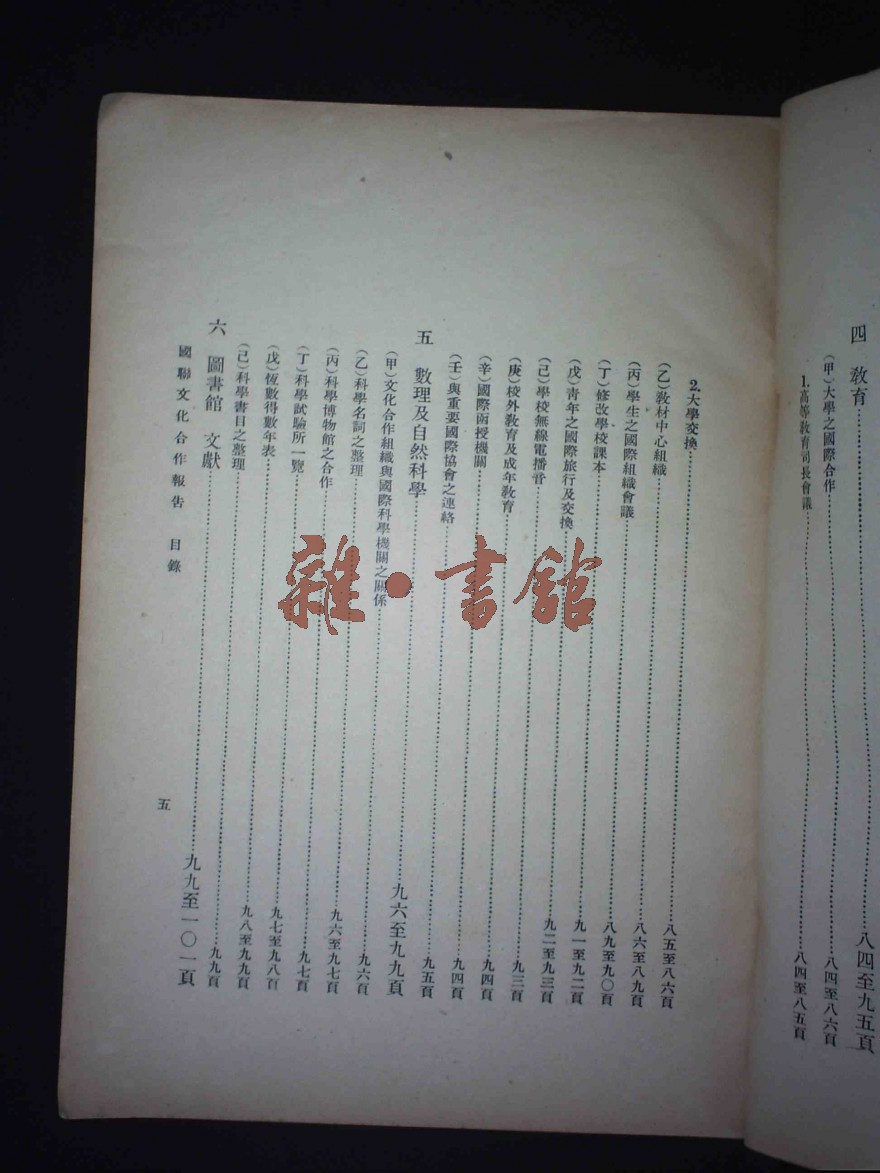 四　教育……八四至九五頁
（甲）大學之國際合作……八四至八六頁
1.高等教育司長會議……八四至八五頁
2.大學交換……八五至八六頁
（乙）教材中心組織……八六至八九頁
（丙）學生之國際組織會議……八九至九〇頁
（丁）修改學校課本……九一至九二頁
（戊）青年之國際旅行及交換……九二至九三頁
（己）學校無線電播音……九三頁
（庚）校外教育及成年教育……九四頁
（辛）國際函授機關……九四頁
（壬）與重要國際協會之連絡……九五頁
五　數理及自然科學……九六至九九頁
（甲）文化合作組織與國際科學機關之關係……九六頁
（乙）科學名詞之整理……九六至九七頁
（丙）科學博物館之合作……九七頁
（丁）科學試驗所一覽……九七至九八頁
（戊）恆數得數年表……九八至九九頁
（己）科學書目之整理……九九頁
六　圖書館　文獻……九九至一〇一頁
國聯文化合作報告　目錄
五
雜·書館